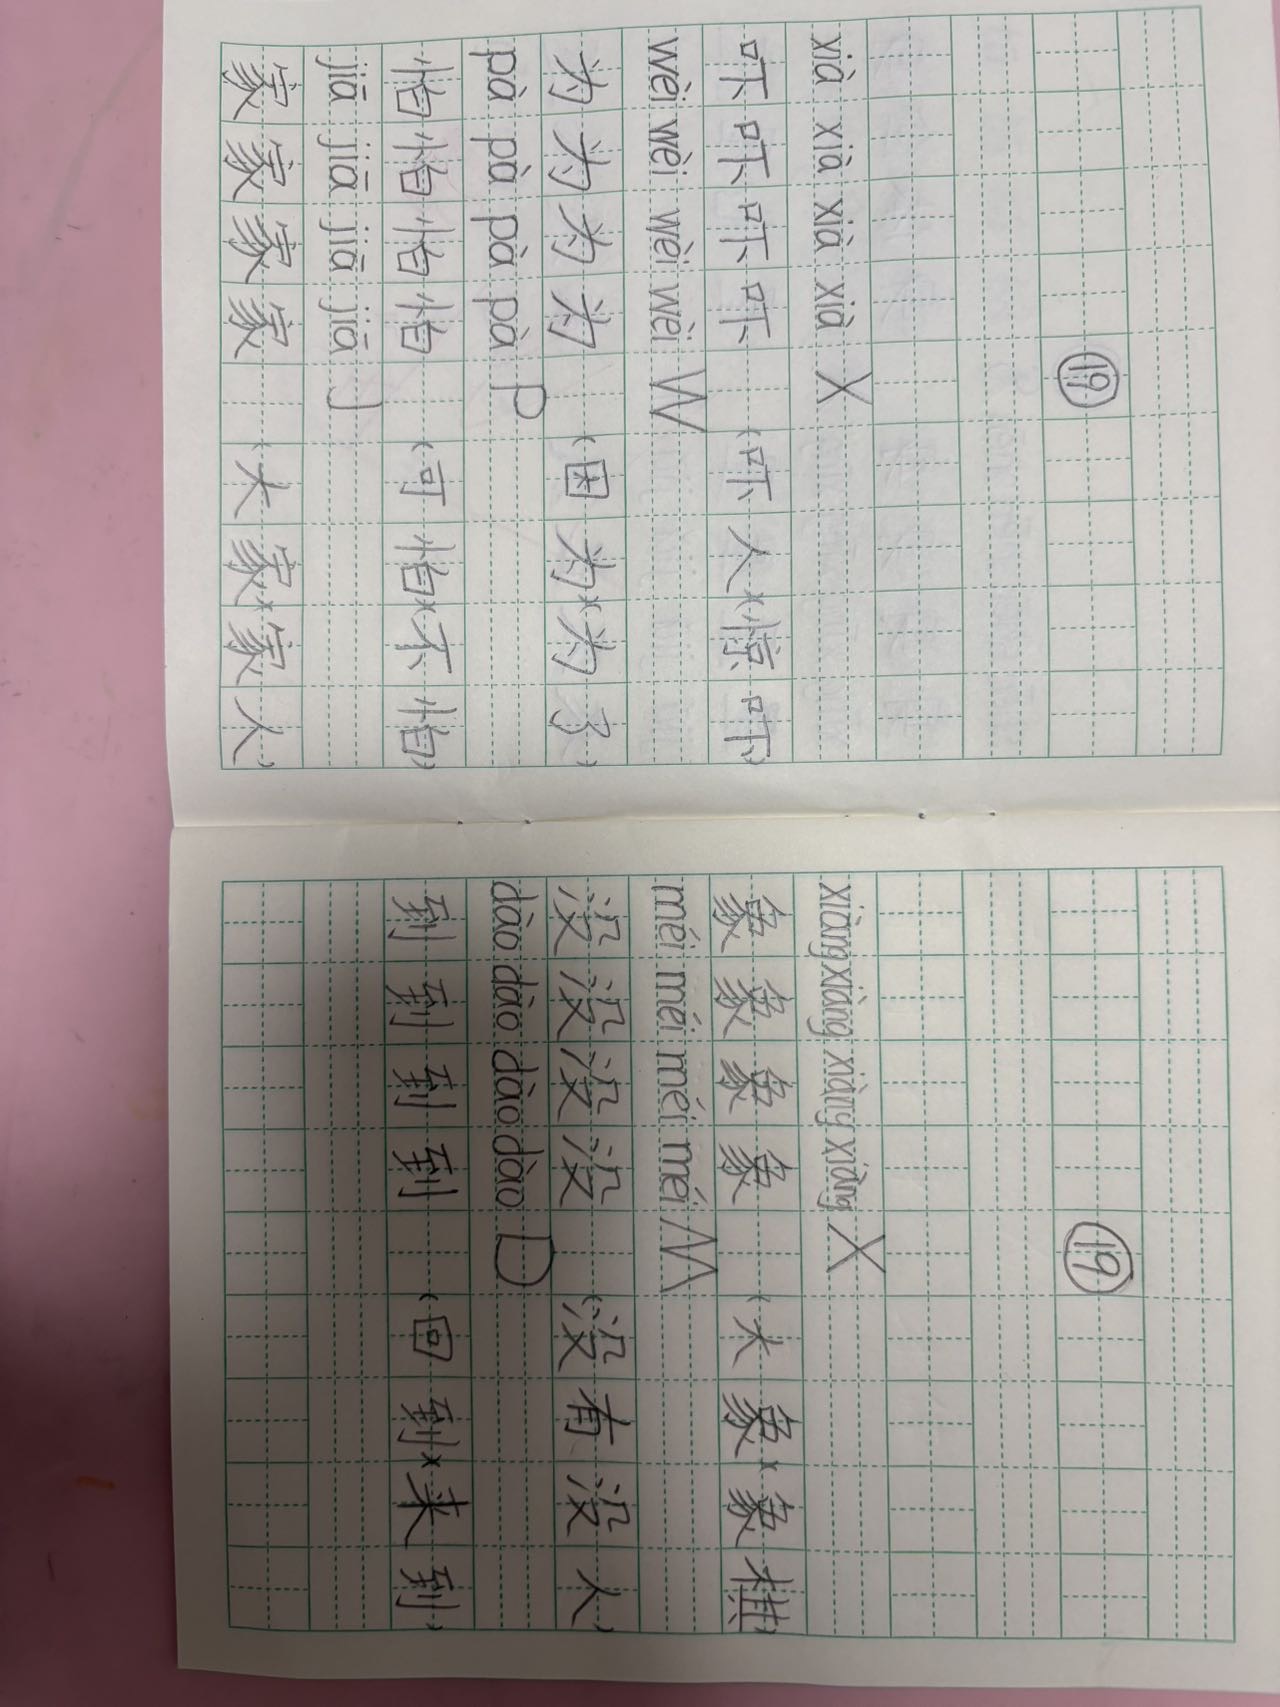 ⑲
xià xià xià xià X
吓吓吓吓 (吓人)(惊吓)
wèi wèi wèi wèi W
为为为为 (因为)(为了)
pà pà pà pà P
怕怕怕怕 (可怕)(不怕)
jiā jiā jiā jiā J
家家家家 (大家)(家人)
⑲
xiàng xiàng xiàng xiàng X
象象象象 (大象)(象棋)
méi méi méi méi M
没没没没 (没有 没人)
dào dào dào dào D
到到到到 (回到)(来到)